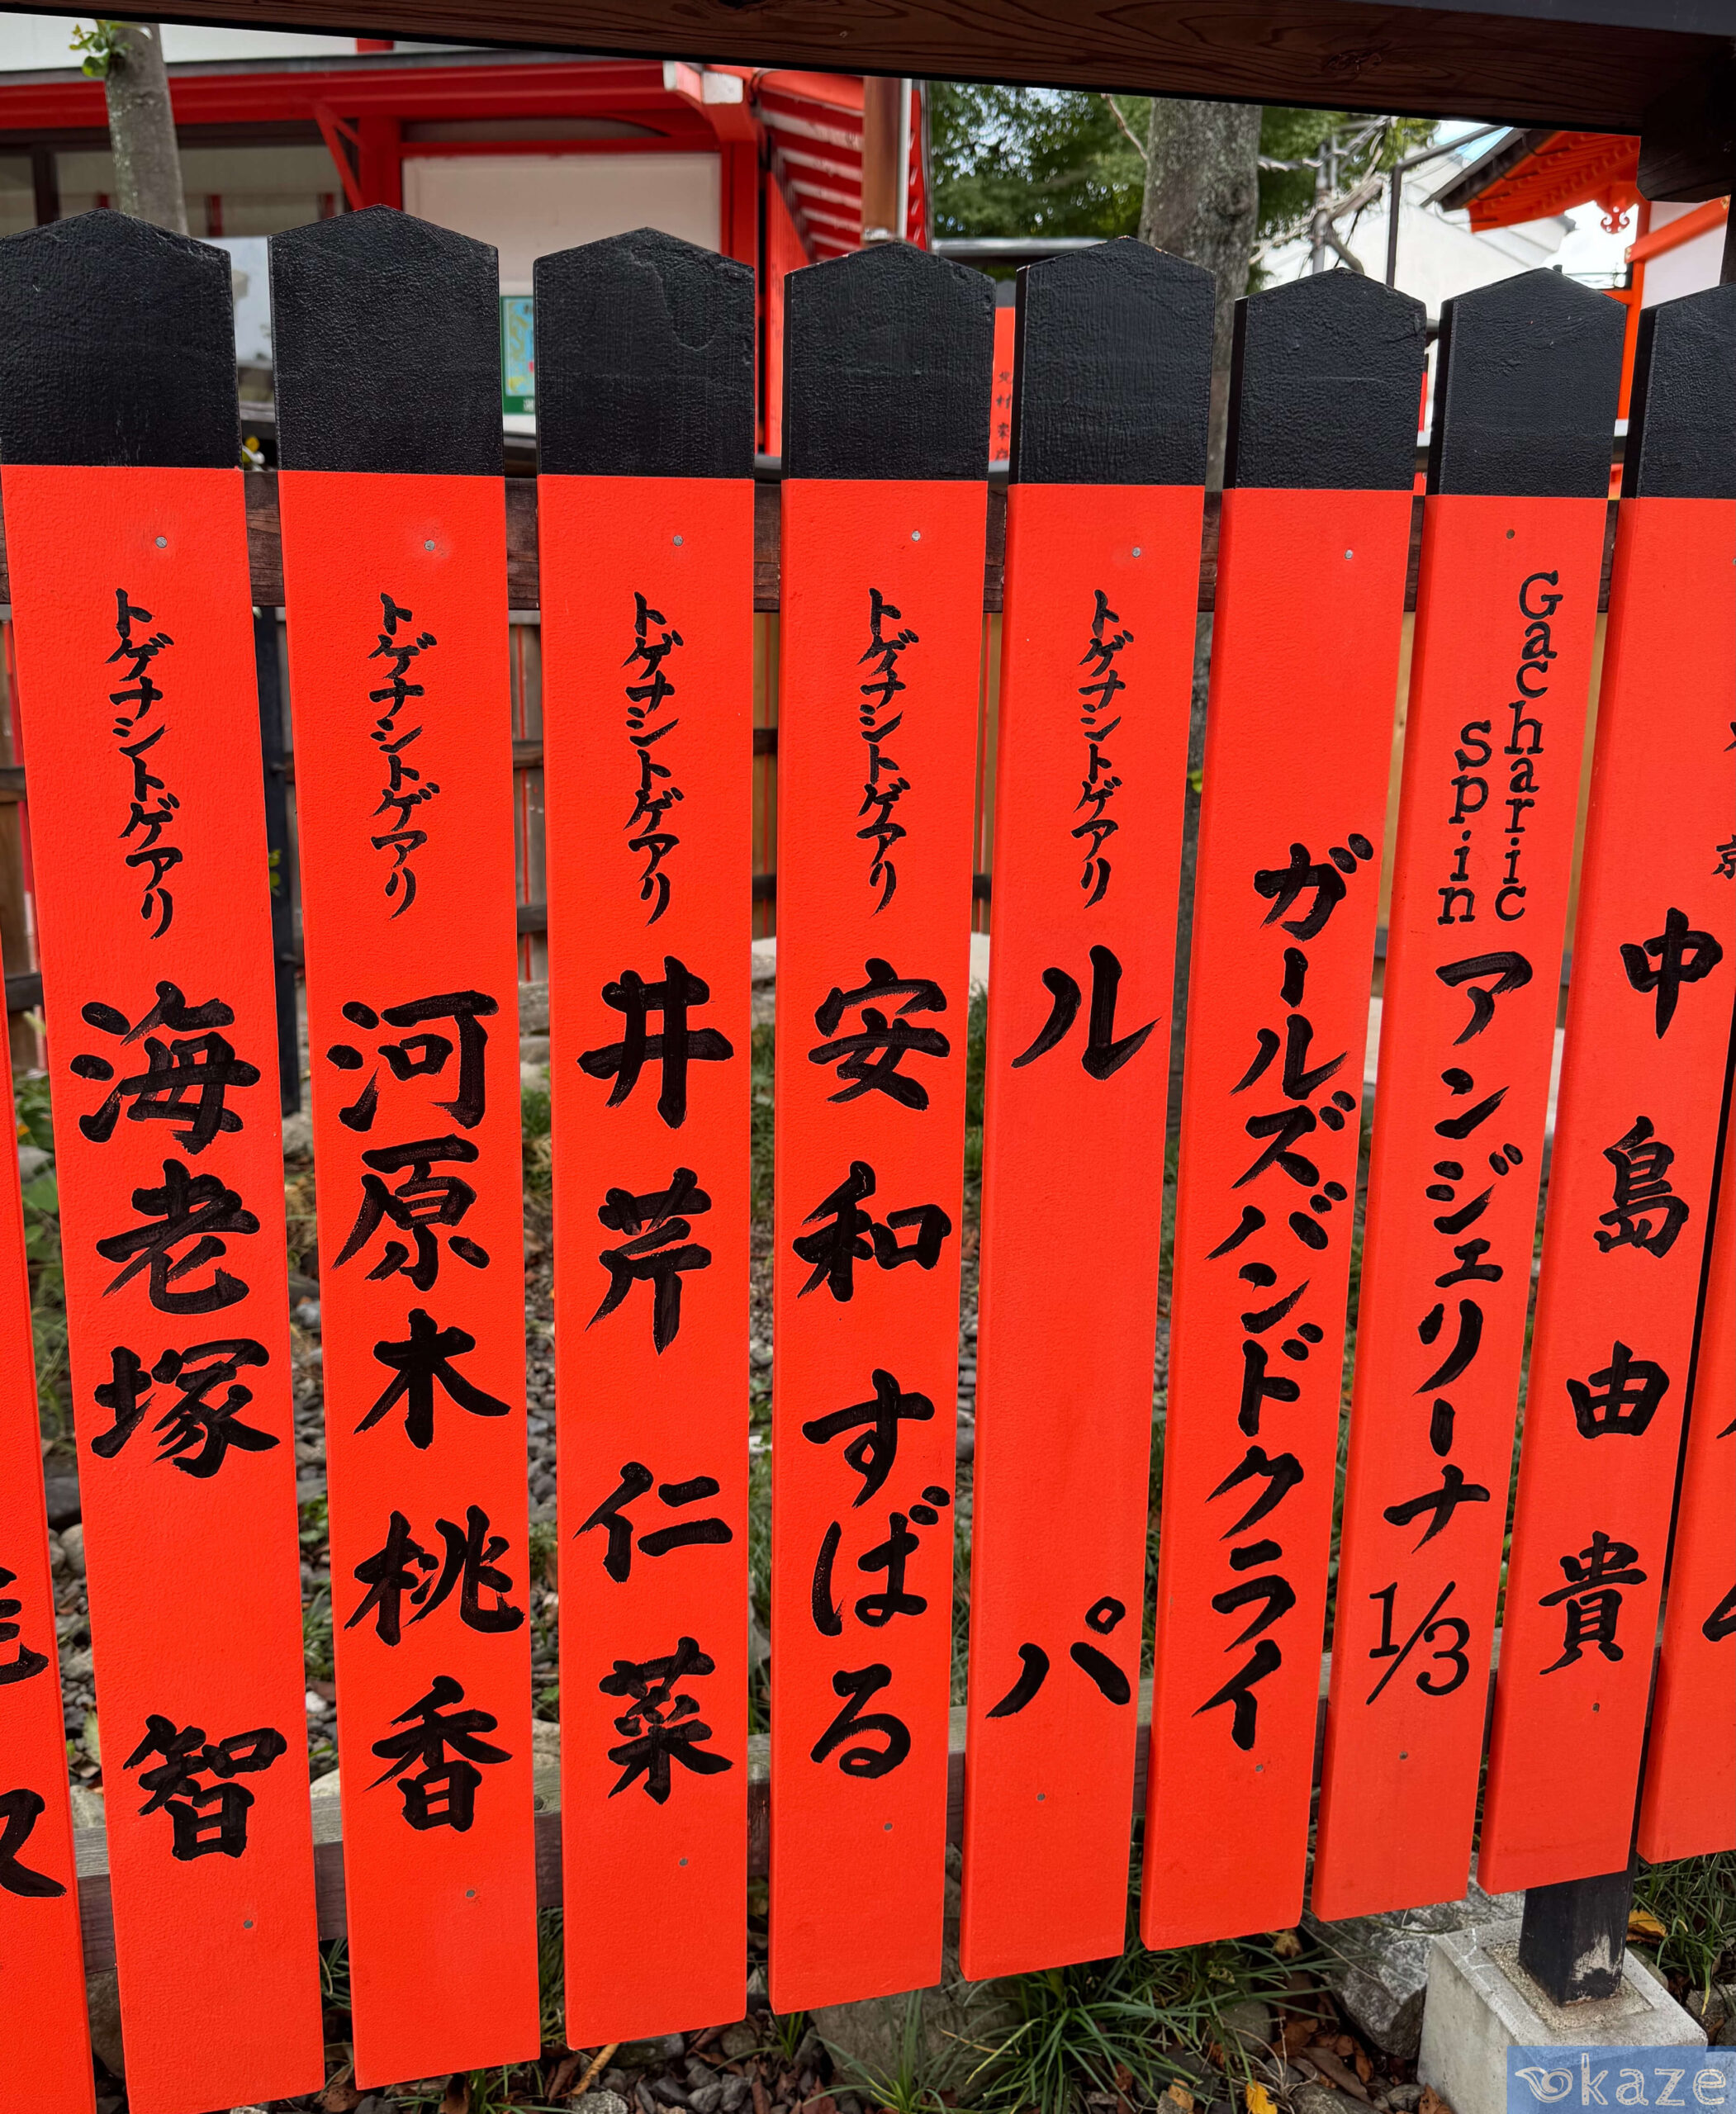 トゲナシトゲアリ
海老塚 智
トゲナシトゲアリ
河原木 桃香
トゲナシトゲアリ
井芹 仁菜
トゲナシトゲアリ
安和 すばる
トゲナシトゲアリ
ルパ
ガールズバンドクライ
Gacharic
spin
アンジェリーナ1/3
中島由貴
kaze